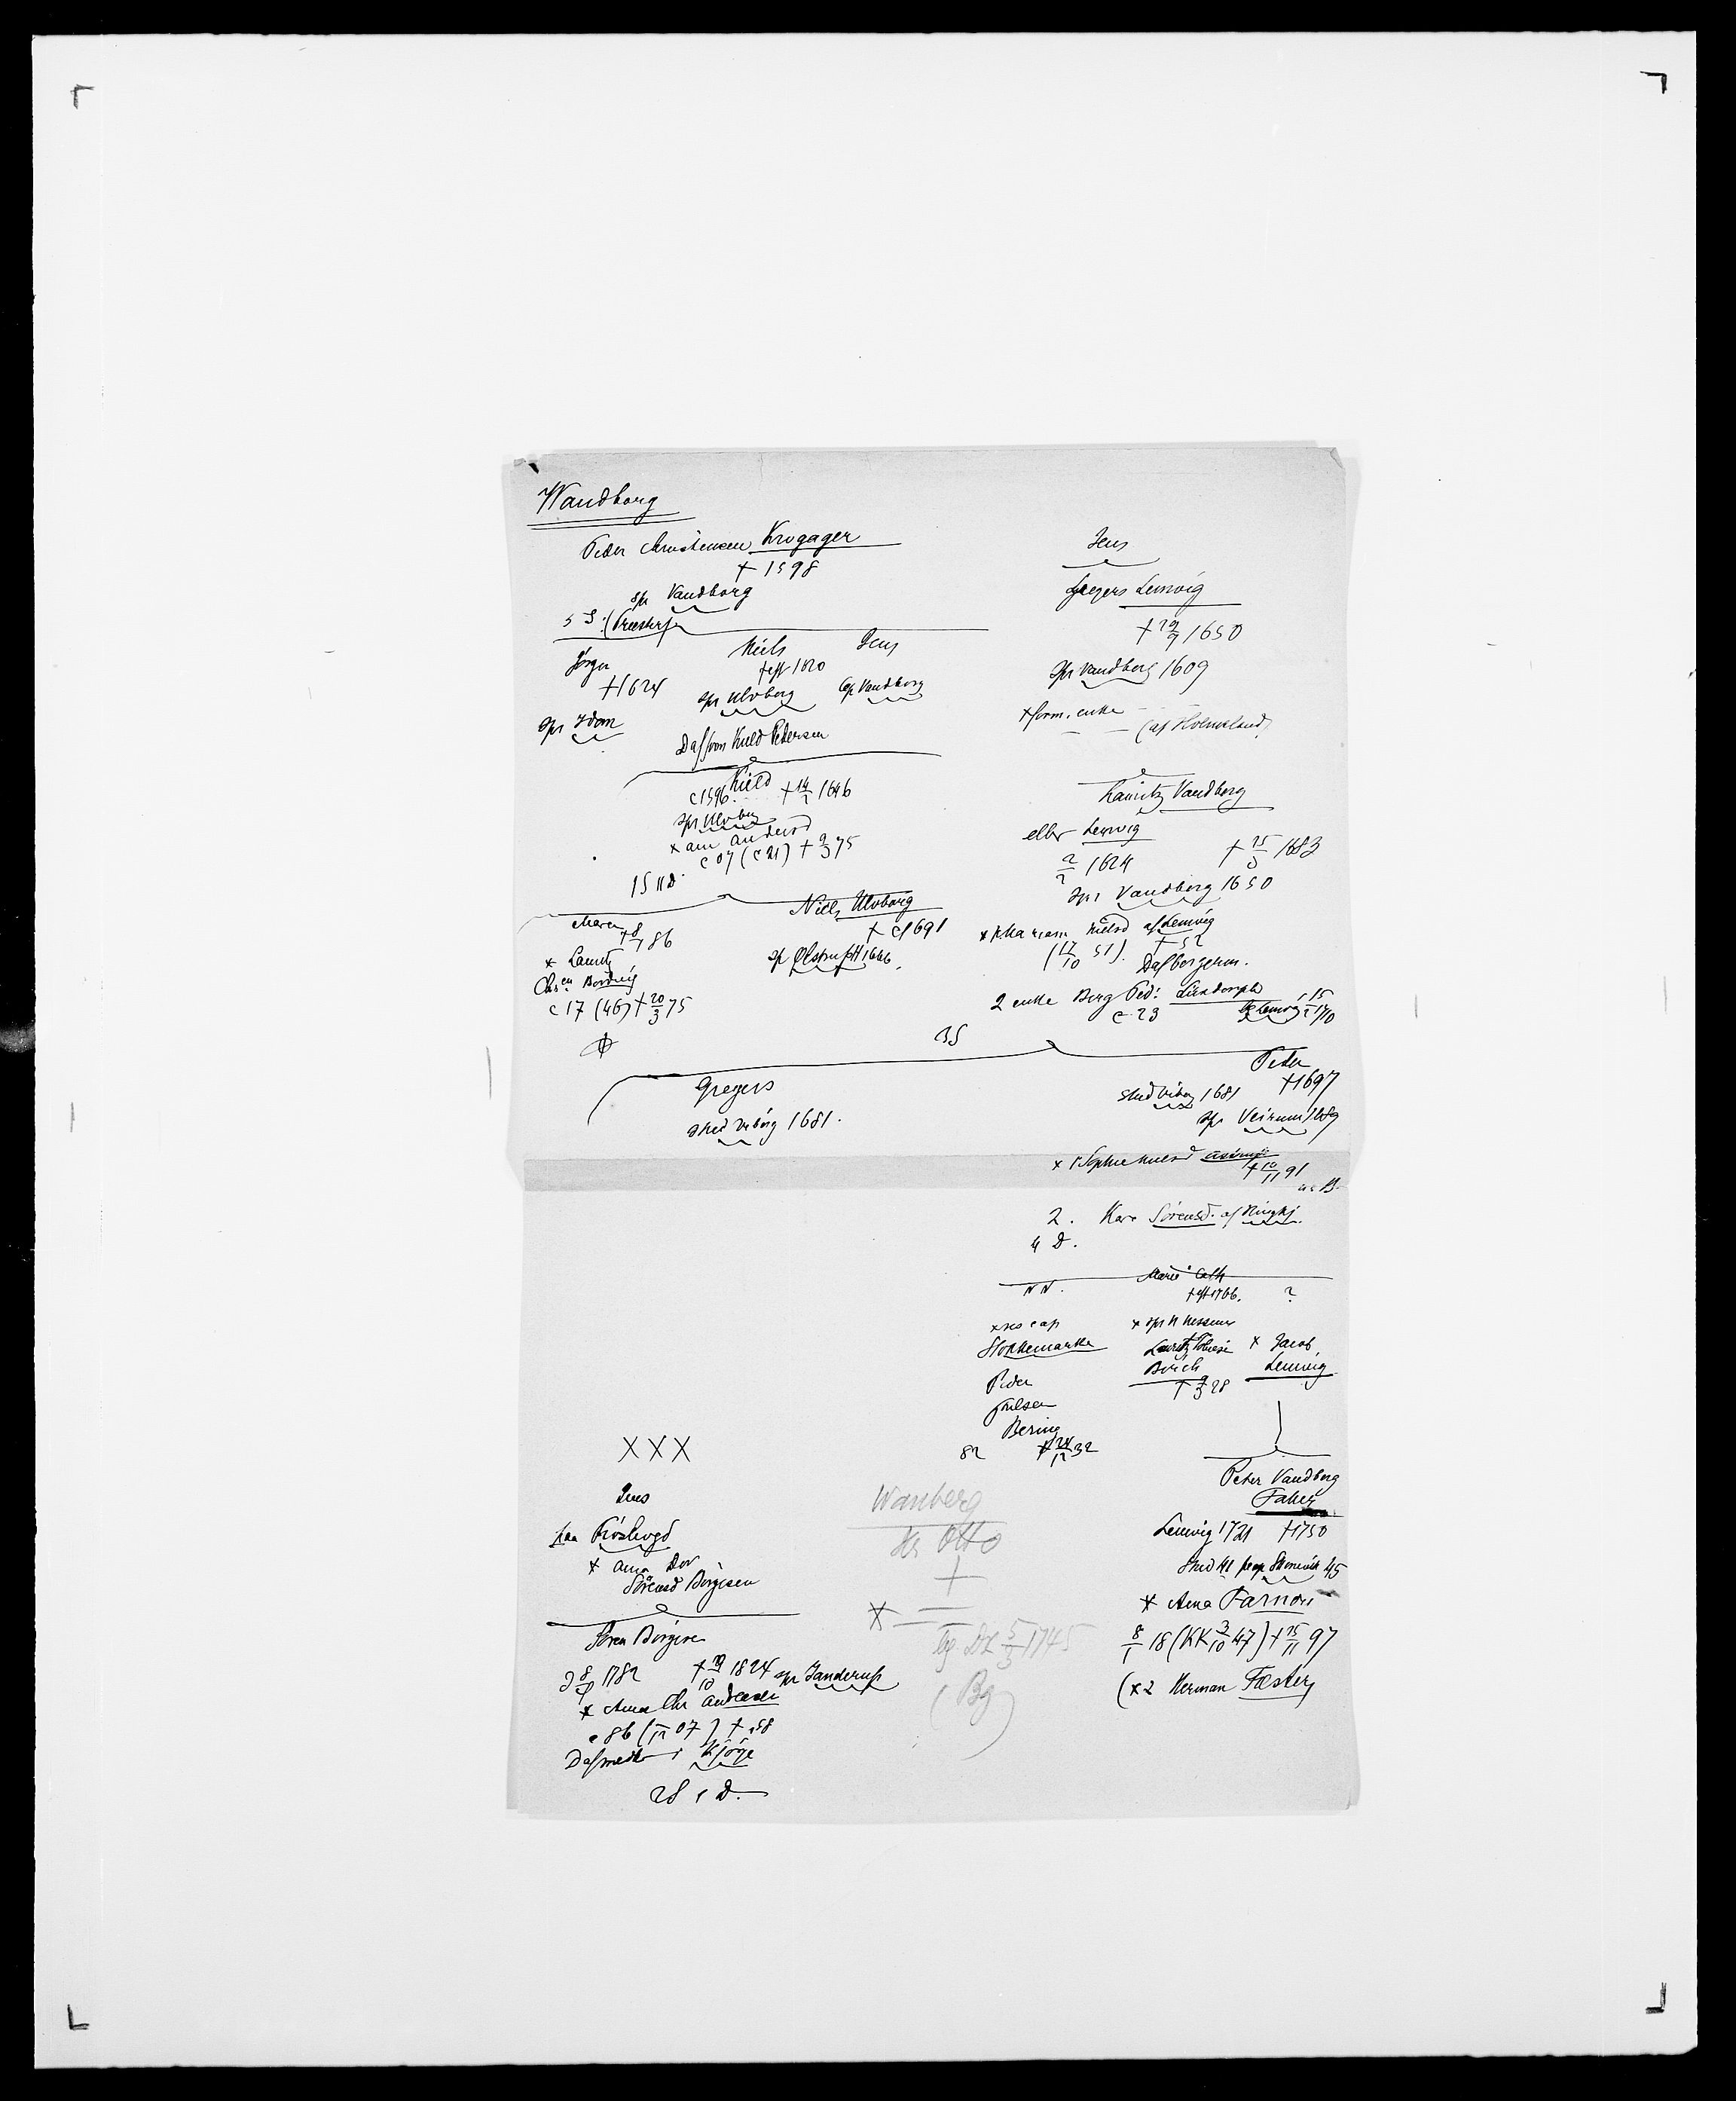 Wandborg
Peder Christensen Krogager
† 1598
spr Vandborg
5 S. (Præster)
Jørgen
† 1624
spr Idom
Niels
† eft 1620
spr Ulvborg
Jens
Cap Vandborg
Datsøn Kield Pedersen
Kield
c 1596 † 14/2 1646
spr Ulvborg
× Ann Andersd
c 07 (c 21) † 2/3 75
1 S 11 D
Maren
† 8/7 86
× Lauritz
Chrsen Bording
c 17 (46) † 20/3 75
Niels Ulvborg
† c 1691
sp Ølstrup H 1646
Jens
Gregers Lemvig
† 29/9 1650
spr Vandborg 1609
× form. enke
(af Holmsland)
Lauritz Vandborg
eller Lemvig
2/2 1624 † 25/3 1683
spr Vandborg 1650
× 1 Mariann Nielsd af Lemvig
(17/10 51). † 52
Dat borgerm.
2 enke Borg Ped: Lundorph
c 23
3 S
Gregers
stud Viborg 1681.
Peder
† 1697
stud Viborg 1681
spr Veirum
× 1 Sophie Nielsd
† 10/11 91
u. B.
2. Kar. Sørensd. af Ringkj.
4 D.
N N.
× res cap
Stokkemarke
Peder
Poulsen
Bering
82 † 24/12 32
Marie Cath
† eft 1766.
× spr N Nissum
Lauritz
Buch
† 9/3 28
?
× Jacob
Lemvig
Peter Vandborg
Faber
Lemvig 1721 † 1750
45
× Anna Farnow
8/1 18 (KK 3/10 47) † 15/11 97
(× 2 Herman Fæster
× × ×
Jens
paa Frøslevgd
× Anna Dor
Sørensd Børgesen
Søren Børgesen
8/4 1782 † 19/10 1824 spr Janderup
× Anna Chr Andersen
c 86 (/12 07) † 58
Dat i Kjøge
2 S 1 D.
Wanberg
Hr Otto
+
×
bg D L 5/3 1745
(Bg)